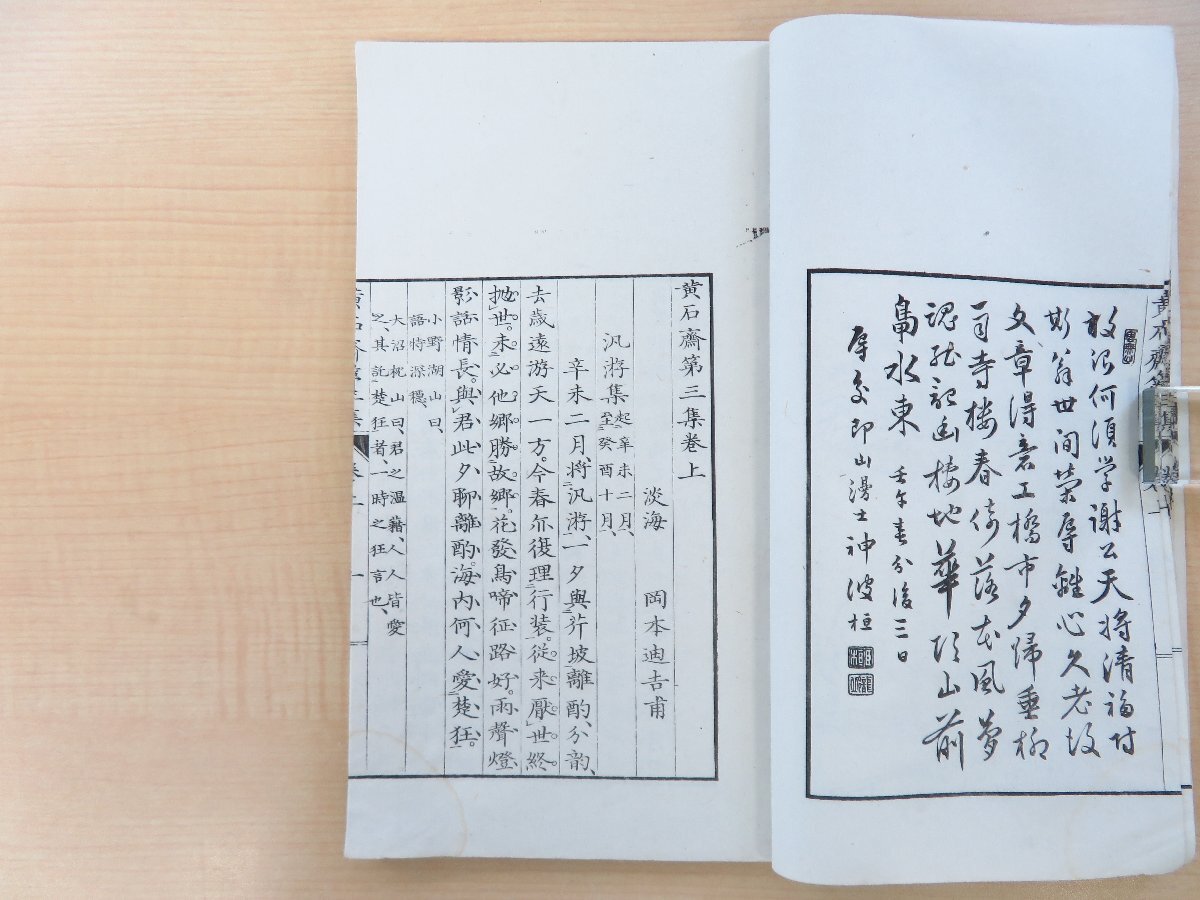 放浪何須学謝公天将清福付
斯翁世間榮辱雖心久老坡
文章得意工橋市夕帰垂柳
寺楼春倚落花風夢
認能記幽棲地華頂山前
鳥水東 壬午春分後三日
辱交即山漫士神波桓
黄石齋第三集卷上
淡海 岡本迪吉甫
汎游集 起辛未二月、至癸酉十月、
辛未二月、將汎游、一夕與芥坡離酌、分韵、
去歳遠游天一方。今春尓復理行装。從来厭世終
抛世。未必他鄉勝故鄉。花發鳥啼征路好。雨聲燈
影話情長。與君此夕聊離酌。海内何人愛楚狂。
小野湖山曰、
語特深穩、
大沼枕山曰、君之温藉、人人皆愛
之、其託楚狂者、一時之狂言也、